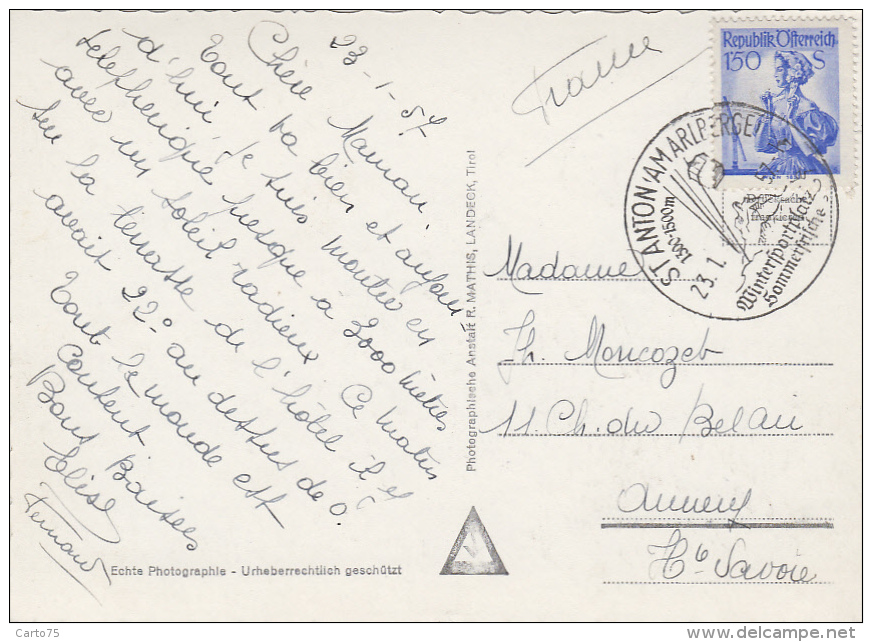 23-1-57
Chère Maman
Tout va bien et aujour
d'hui je suis montée en
telepherique presque à 2000 mètres
avec un soleil radieux. Ce matin
sur la terrasse de l'hôtel il y
avait 22° au dessus de 0.
Tout le monde est
content
Bons Baisers
Elise
Fernand
France
Republik Österreich
1'50 S
ST ANTON AM ARLBERG
1300-1500m
23.1.
Wintersportplatz
Sommerfrische
Madame
Th. Moncozet
11 Ch. du Belair
Annecy
Hte Savoie
Photographische Anstalt R. MATHIS, LANDECK, Tirol
Echte Photographie - Urheberrechtlich geschützt
Carto75
www.delcampe.net